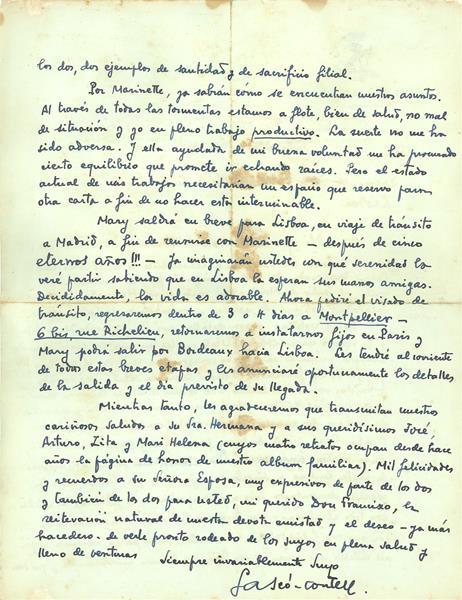 los dos, dos ejemplos de santidad y de sacrificio filial.
Por Marinette, ya sabrán como se encuentran nuestros asuntos.
Al través de todas las tormentas estamos a flote, bien de salud, no mal
de situación y yo en pleno trabajo productivo. La suerte no me ha
sido adversa. Y ella ayudada de mi buena voluntad me ha procurado
cierto equilibrio que promete ir echando raíces. Pero el estado
actual de mis trabajos necesitarían un espacio que reservo para
otra carta a fin de no hacer esta interminable.
Mary saldrá en breve para Lisboa, en viaje de tránsito
a Madrid, a fin de reunirse con Marinette — después de cinco
eternos años!!! — Ya imaginarán ustedes con qué serenidad la
veré partir sabiendo que en Lisboa la esperan sus manos amigas.
Decididamente, la vida es adorable. Ahora pediré el visado de
tránsito, regresaremos dentro de 3 o 4 días a Montpellier -
6 bis, rue Richelieu, retornaremos a instalarnos fijos en París y
Mary podrá salir por Bordeaux hacia Lisboa. Les tendré al corriente
de todas estas breves etapas y les anunciaré oportunamente los detalles
de la salida y el día previsto de su llegada.
Mientras tanto, les agradeceremos que transmitan nuestros
cariñosos saludos a su Sra. Hermana y a sus queridísimos José,
Arturo, Zita y Mari Helena (cuyos cuatro retratos ocupan desde hace
años la página de honor de nuestro album familiar). Mil felicidades
y recuerdos a su Señora Esposa, muy expresivos de parte de los dos
y también de los dos para usted, mi querido Don Francisco, la
reiteración natural de nuestra devota amistad y el deseo - ya más
hacedero - de verle pronto rodeado de los suyos en plena salud y
lleno de venturas
Siempre invariablemente suyo
Gascó-Contell